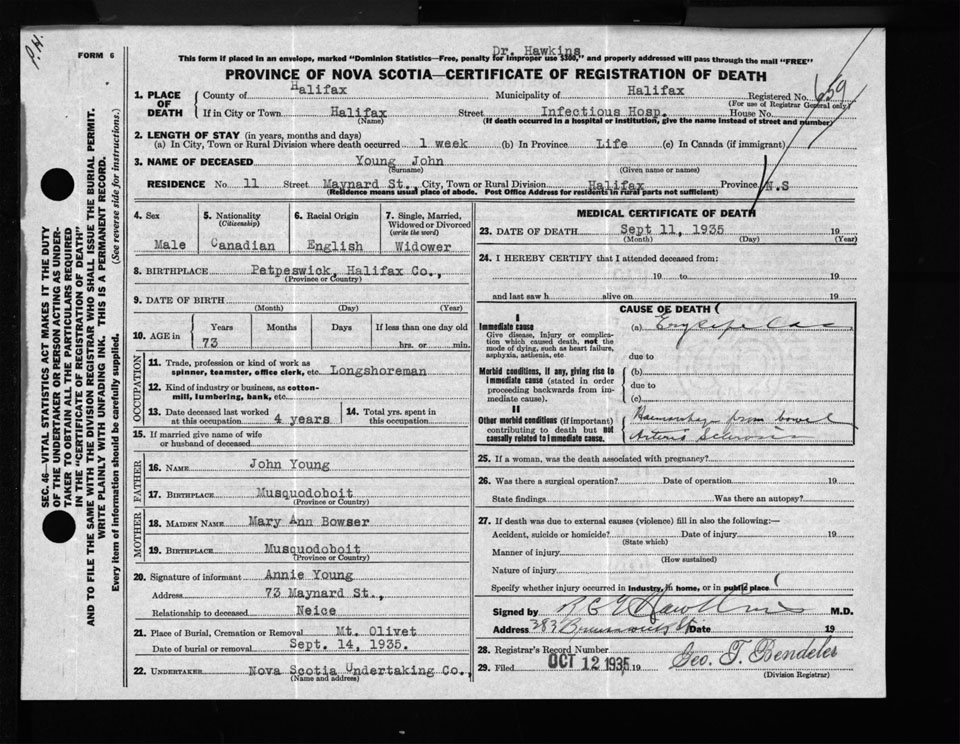 P.H.
FORM 6
Dr. Hawkins
This form if placed in an envelope, marked "Dominion Statistics—Free, penalty for improper use $300," and properly addressed will pass through the mail "FREE"
PROVINCE OF NOVA SCOTIA—CERTIFICATE OF REGISTRATION OF DEATH
SEC. 46—VITAL STATISTICS ACT MAKES IT THE DUTY
OF THE UNDERTAKER OR PERSON ACTING AS UNDER-
TAKER TO OBTAIN ALL THE PARTICULARS REQUIRED
IN THE "CERTIFICATE OF REGISTRATION OF DEATH"
AND TO FILE THE SAME WITH THE DIVISION REGISTRAR WHO SHALL ISSUE THE BURIAL PERMIT.
WRITE PLAINLY WITH UNFADING INK. THIS IS A PERMANENT RECORD.
Every item of information should be carefully supplied. (See reverse side for instructions.)
1. PLACE OF DEATH
County of Halifax Municipality of Halifax Registered No. 659
(For use of Registrar General only.)
If in City or Town Halifax Street Infectious Hosp. House No.
(Name) (If death occurred in a hospital or institution, give the name instead of street and number)
2. LENGTH OF STAY (in years, months and days)
(a) In City, Town or Rural Division where death occurred 1 week (b) In Province Life (c) In Canada (if immigrant)
3. NAME OF DECEASED Young John
(Surname) (Given name or names)
RESIDENCE No. 11 Street Maynard St., City, Town or Rural Division Halifax Province N.S
(Residence means usual place of abode. Post Office Address for residents in rural parts not sufficient)
4. Sex
Male
5. Nationality
(Citizenship)
Canadian
6. Racial Origin
English
7. Single, Married,
Widowed or Divorced
(write the word)
Widower
8. BIRTHPLACE Petpeswick, Halifax Co.,
(Province or Country)
9. DATE OF BIRTH
(Month) (Day) (Year)
10. AGE in
Years Months Days If less than one day old
73 hrs. or min.
OCCUPATION
11. Trade, profession or kind of work as
spinner, teamster, office clerk, etc. Longshoreman
12. Kind of industry or business, as cotton-
mill, lumbering, bank, etc.
13. Date deceased last worked
at this occupation 4 years
14. Total yrs. spent in
this occupation
15. If married give name of wife
or husband of deceased
FATHER
16. NAME John Young
17. BIRTHPLACE Musquodoboit
(Province or Country)
MOTHER
18. MAIDEN NAME Mary Ann Bowser
19. BIRTHPLACE Musquodoboit
(Province or Country)
20. Signature of informant Annie Young
Address 73 Maynard St.,
Relationship to deceased Neice
21. Place of Burial, Cremation or Removal Mt. Olivet
Date of burial or removal Sept. 14, 1935.
22. UNDERTAKER Nova Scotia Undertaking Co.,
(Name and address)
MEDICAL CERTIFICATE OF DEATH
23. DATE OF DEATH Sept 11, 1935 19
(Month) (Day) (Year)
24. I HEREBY CERTIFY that I attended deceased from:
19 to 19
and last saw h alive on 19
CAUSE OF DEATH
I
Immediate cause
Give disease, injury or complica-
tion which caused death, not the
mode of dying, such as heart failure,
asphyxia, asthenia, etc.
(a) Erysipelas
due to
Morbid conditions, if any, giving rise to
immediate cause (stated in order
proceeding backwards from im-
mediate cause).
(b)
due to
(c)
II
Other morbid conditions (if important)
contributing to death but not
causally related to immediate cause.
Haemorrhage from bowel
Arterio Sclerosis
25. If a woman, was the death associated with pregnancy?
26. Was there a surgical operation? Date of operation 19
State findings Was there an autopsy?
27. If death was due to external causes (violence) fill in also the following:—
Accident, suicide or homicide? Date of injury 19
(State which)
Manner of injury
(How sustained)
Nature of injury
Specify whether injury occurred in industry, in home, or in public place
Signed by Hawkins M.D.
Address 383 Brunswick St Date 19
28. Registrar's Record Number
29. Filed OCT 12 1935 19 Geo. T. Bendeler
(Division Registrar)